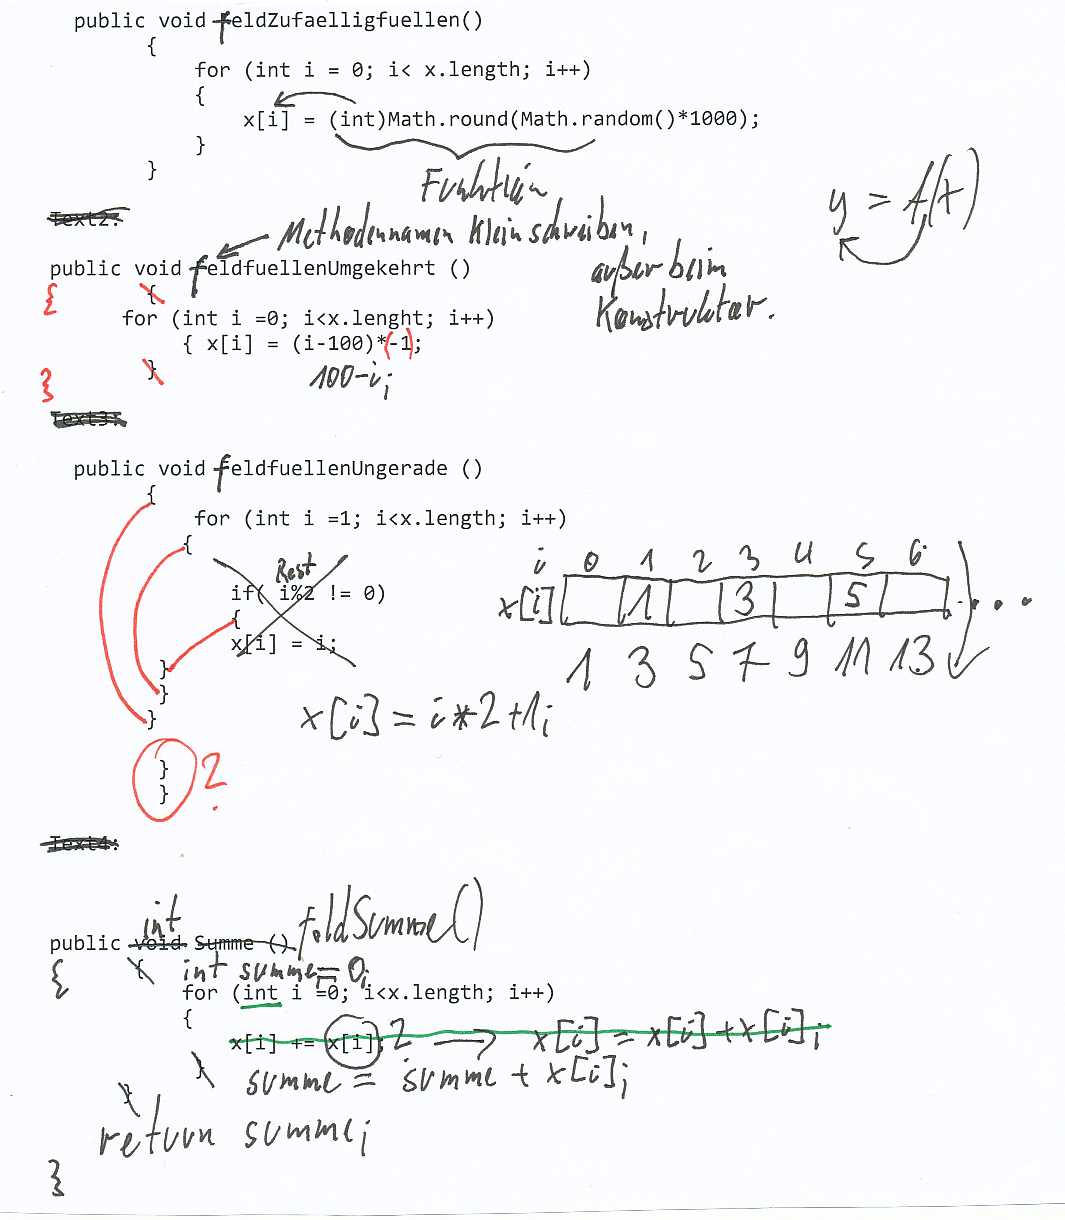 public void feldZufaelligfuellen()
{
for (int i = 0; i< x.length; i++)
{
x[i] = (int)Math.round(Math.random()*1000);
}
}
Funktion
y = f(x)
Text2:
Methodennamen kleinschreiben,
außer beim
Konstruktor.
public void feldfuellenUmgekehrt ()
{ {
for (int i =0; i<x.lenght; i++)
{ x[i] = (i-100)*(-1);
} }
100-i;
Text3:
public void feldfuellenUngerade ()
{
for (int i =1; i<x.length; i++)
{
Rest
if( i%2 != 0)
{
x[i] = i;
}
}
}
i 0 1 2 3 4 5 6
x[i] 1 3 5 ...
1 3 5 7 9 11 13
x[i] = i*2+1;
}
} ?
Text4:
int feldSumme()
public void Summe ()
{ { int summe=0;
for (int i =0; i<x.length; i++)
{
x[i] += x[i]; ? → x[i] = x[i]+x[i];
} summe = summe + x[i];
}
return summe;
}